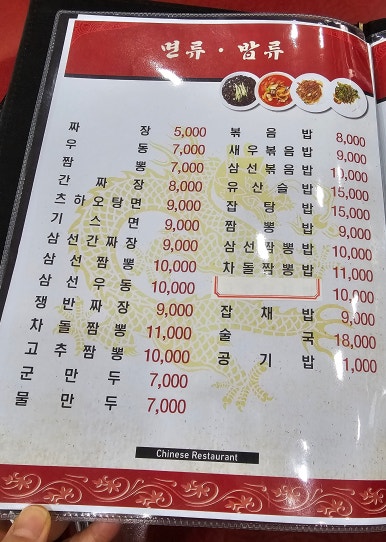 면류 · 밥류
짜장 5,000
우동 7,000
짬뽕 7,000
간짜장 8,000
츠하오탕면 9,000
기스면 9,000
삼선간짜장 9,000
삼선짬뽕 10,000
삼선우동 10,000
쟁반짜장 9,000
차돌짬뽕 11,000
고추짬뽕 10,000
군만두 7,000
물만두 7,000
볶음밥 8,000
새우볶음밥 9,000
삼선볶음밥 10,000
유산슬밥 15,000
잡탕밥 15,000
짬뽕밥 9,000
삼선짬뽕밥 10,000
차돌짬뽕밥 11,000
10,000
잡채밥 9,000
술국 18,000
공기밥 1,000
Chinese Restaurant